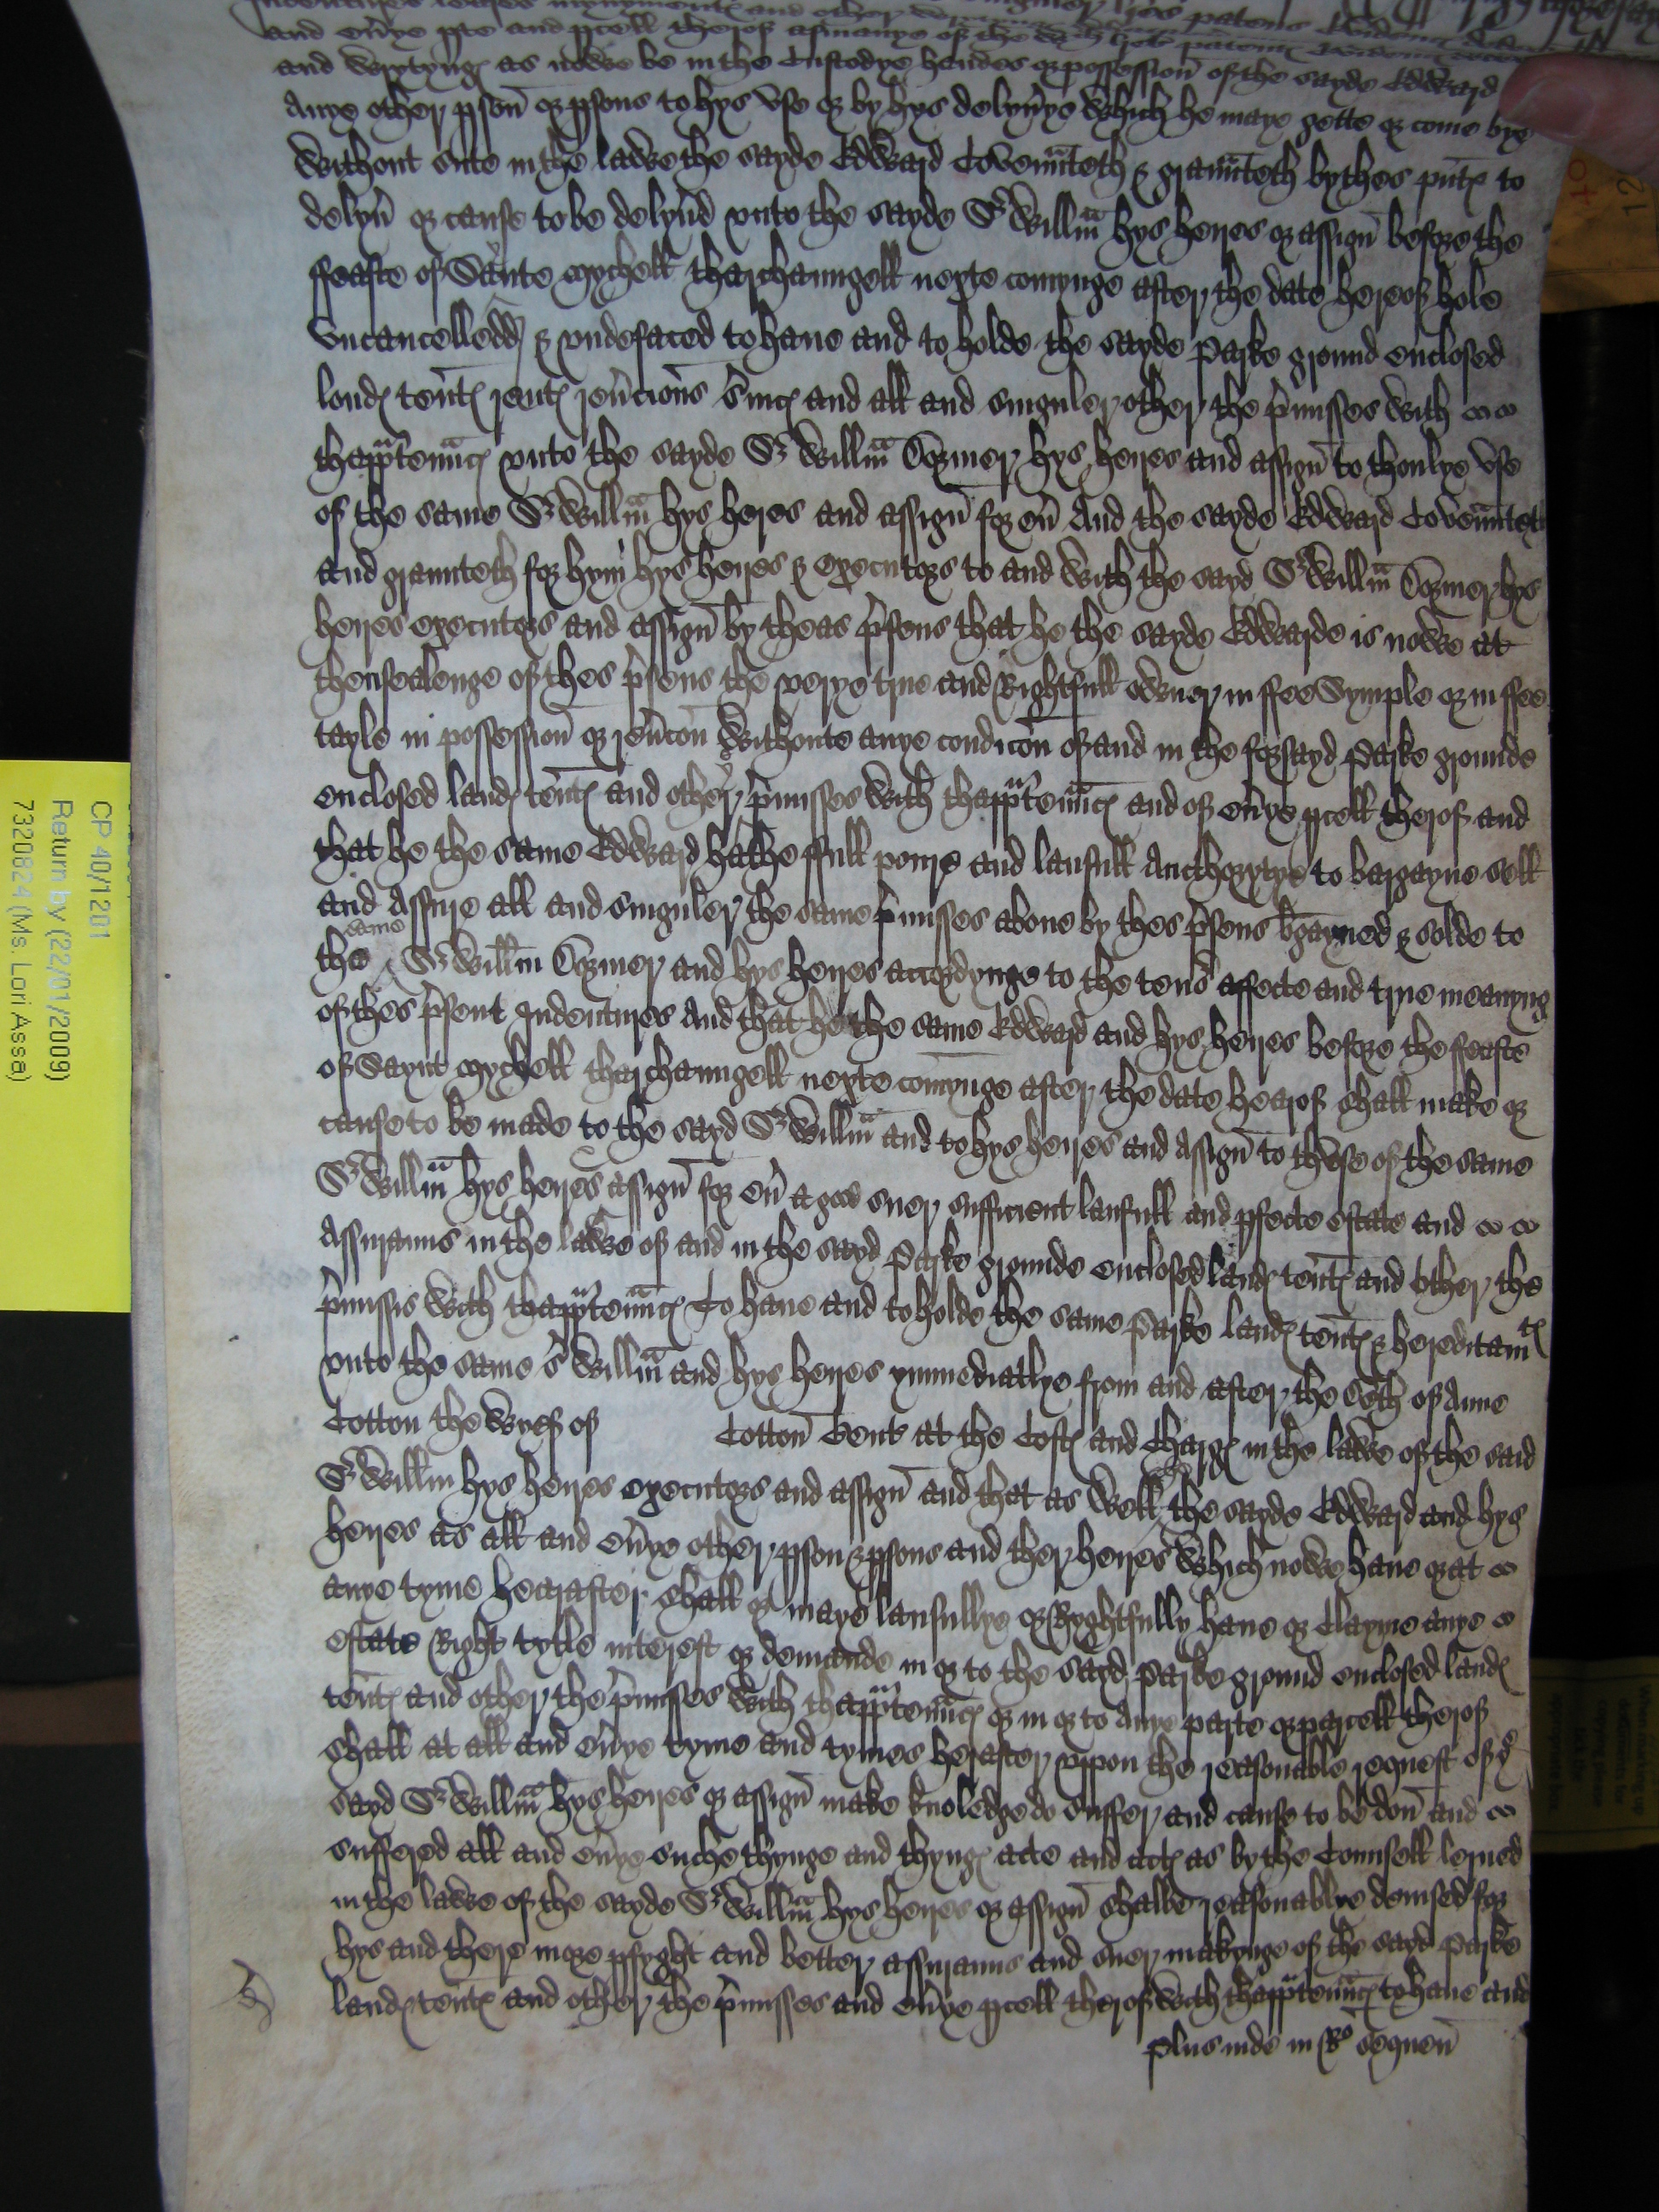 and ev̄ye pte and pcell therof asmanye of the
and wrytyngꝭ as nowe be in the Custodye handes or possession̄ of the sayde Edward
Anye other pson̄ or psons to hys vse or by hys delyv̄ye which he maye gette or come bye
without sute in the lawe the sayde Edward Coven̄nteth & graunteth bythes pn̄tꝭ to
delyv̄ or cause to be delyv̄d vnto the sayde Sr Willm̄ hys heyres or assign̄ before the
ffeaste of Saynte Mychell tharchaungell nexte comynge after the date hereof hole
vncancelledd & vndefaced to haue and to holde the sayde Parke ground enclosed
londꝭ ten̄tꝭ rentꝭ rev̄cions s̄uicꝭ and all and singuler other the p̄misses with
thapp̄ten̄ncꝭ vnto the sayde Sr Willm̄ Cormer hys heyres and assign̄ to thonlye vse
of the same Sr Willm̄ hys heyres and assign̄ for ev̄ And the sayde Edward Coven̄ntet
and graunteth for hym hys heyres & executors to and with the sayd Sr Willm̄ Cormer hys
heyres executors and assign̄ by theas p̄sens that he the sayde Edwarde is nowe at
thensealenge of thes p̄sens the verye true and Rightfull owner in ffee Symple or in ffee
tayle in possession̄ or rev̄con̄ withoute anye condicōn of and in the forsayd Parke grounde
enclosed landꝭ ten̄tꝭ and other p̄misses with thapp̄ten̄ncꝭ and of ev̄ye pcell therof and
that he the same Edward hathe ffull power and laufull Aucthorytye to bargayne sell
and Assure all and singuler the same p̄misses aboue by thes p̄sens b̄gayned & solde to
the same Sr Willm̄ Cormer and hys heyres accordynge to the tenor affecte and true meanyng
of thes p̄sent Indentures And that he the same Edward and hys heyres before the ffeaste
of Saynt Mychell tharchaungell nexte comynge after the date hearof shall make or
cause to be made to the sayd Sr Willm̄ and to hys heyres and Assign̄ to thuse of the same
Sr Willm̄ hys heyres assign̄ for ev̄ a good suer sufficient laufull and pfecte estate and
Assurauns in the lawe of and in the sayd Parke grounde enclosed landꝭ ten̄tꝭ and other the
p̄missis with thapp̄ten̄ncꝭ To haue and to holde the same Parke landꝭ ten̄tꝭ & hereditamtꝭ
vnto the same Sr Willm̄ and hys heyres ymmediatlye from and after the deth of Anne
Cotton the wyef of Cotton̄ Gent at the Costꝭ and Chargꝭ in the lawe of the said
Sr Willm̄ hys heyres executors and assign̄ and that as well the sayde Edward and hys
heyres as all and ev̄ye other pson & psons and ther heyres which nowe haue or at
anye tyme hearafter shall or maye laufullye or Ryghtfully haue or Clayme anye
estate Right tytle interest or demaunde in or to the sayd Parke ground enclosed landꝭ
ten̄tꝭ and other the p̄misses with thapp̄ten̄ncꝭ or in or to Anye parte or parcell therof
shall at all and ev̄ye tyme and tymes herafter vppon the reasonable request of ye
sayd Sr Willm̄ hys heyres or assign̄ make knoledge do suffer and cause to be don̄ and
suffered all and ev̄ye suche thynge and thyngꝭ acte and actꝭ as by the Counsell lerned
in the lawe of the sayde Sr Willm̄ hys heyres or assign̄ shalbe reasonablye deuised for
hys and there more pfyght and better assurauns and suer makynge of the sayd Parke
landꝭ ten̄tꝭ and other the p̄misses and ev̄ye pcell therof with thapp̄ten̄ncꝭ to haue and
Plus inde in Ro sequen̄
CP 40/1201
Return by (22/01/2009)
7320824 (Ms. Lori Asse)